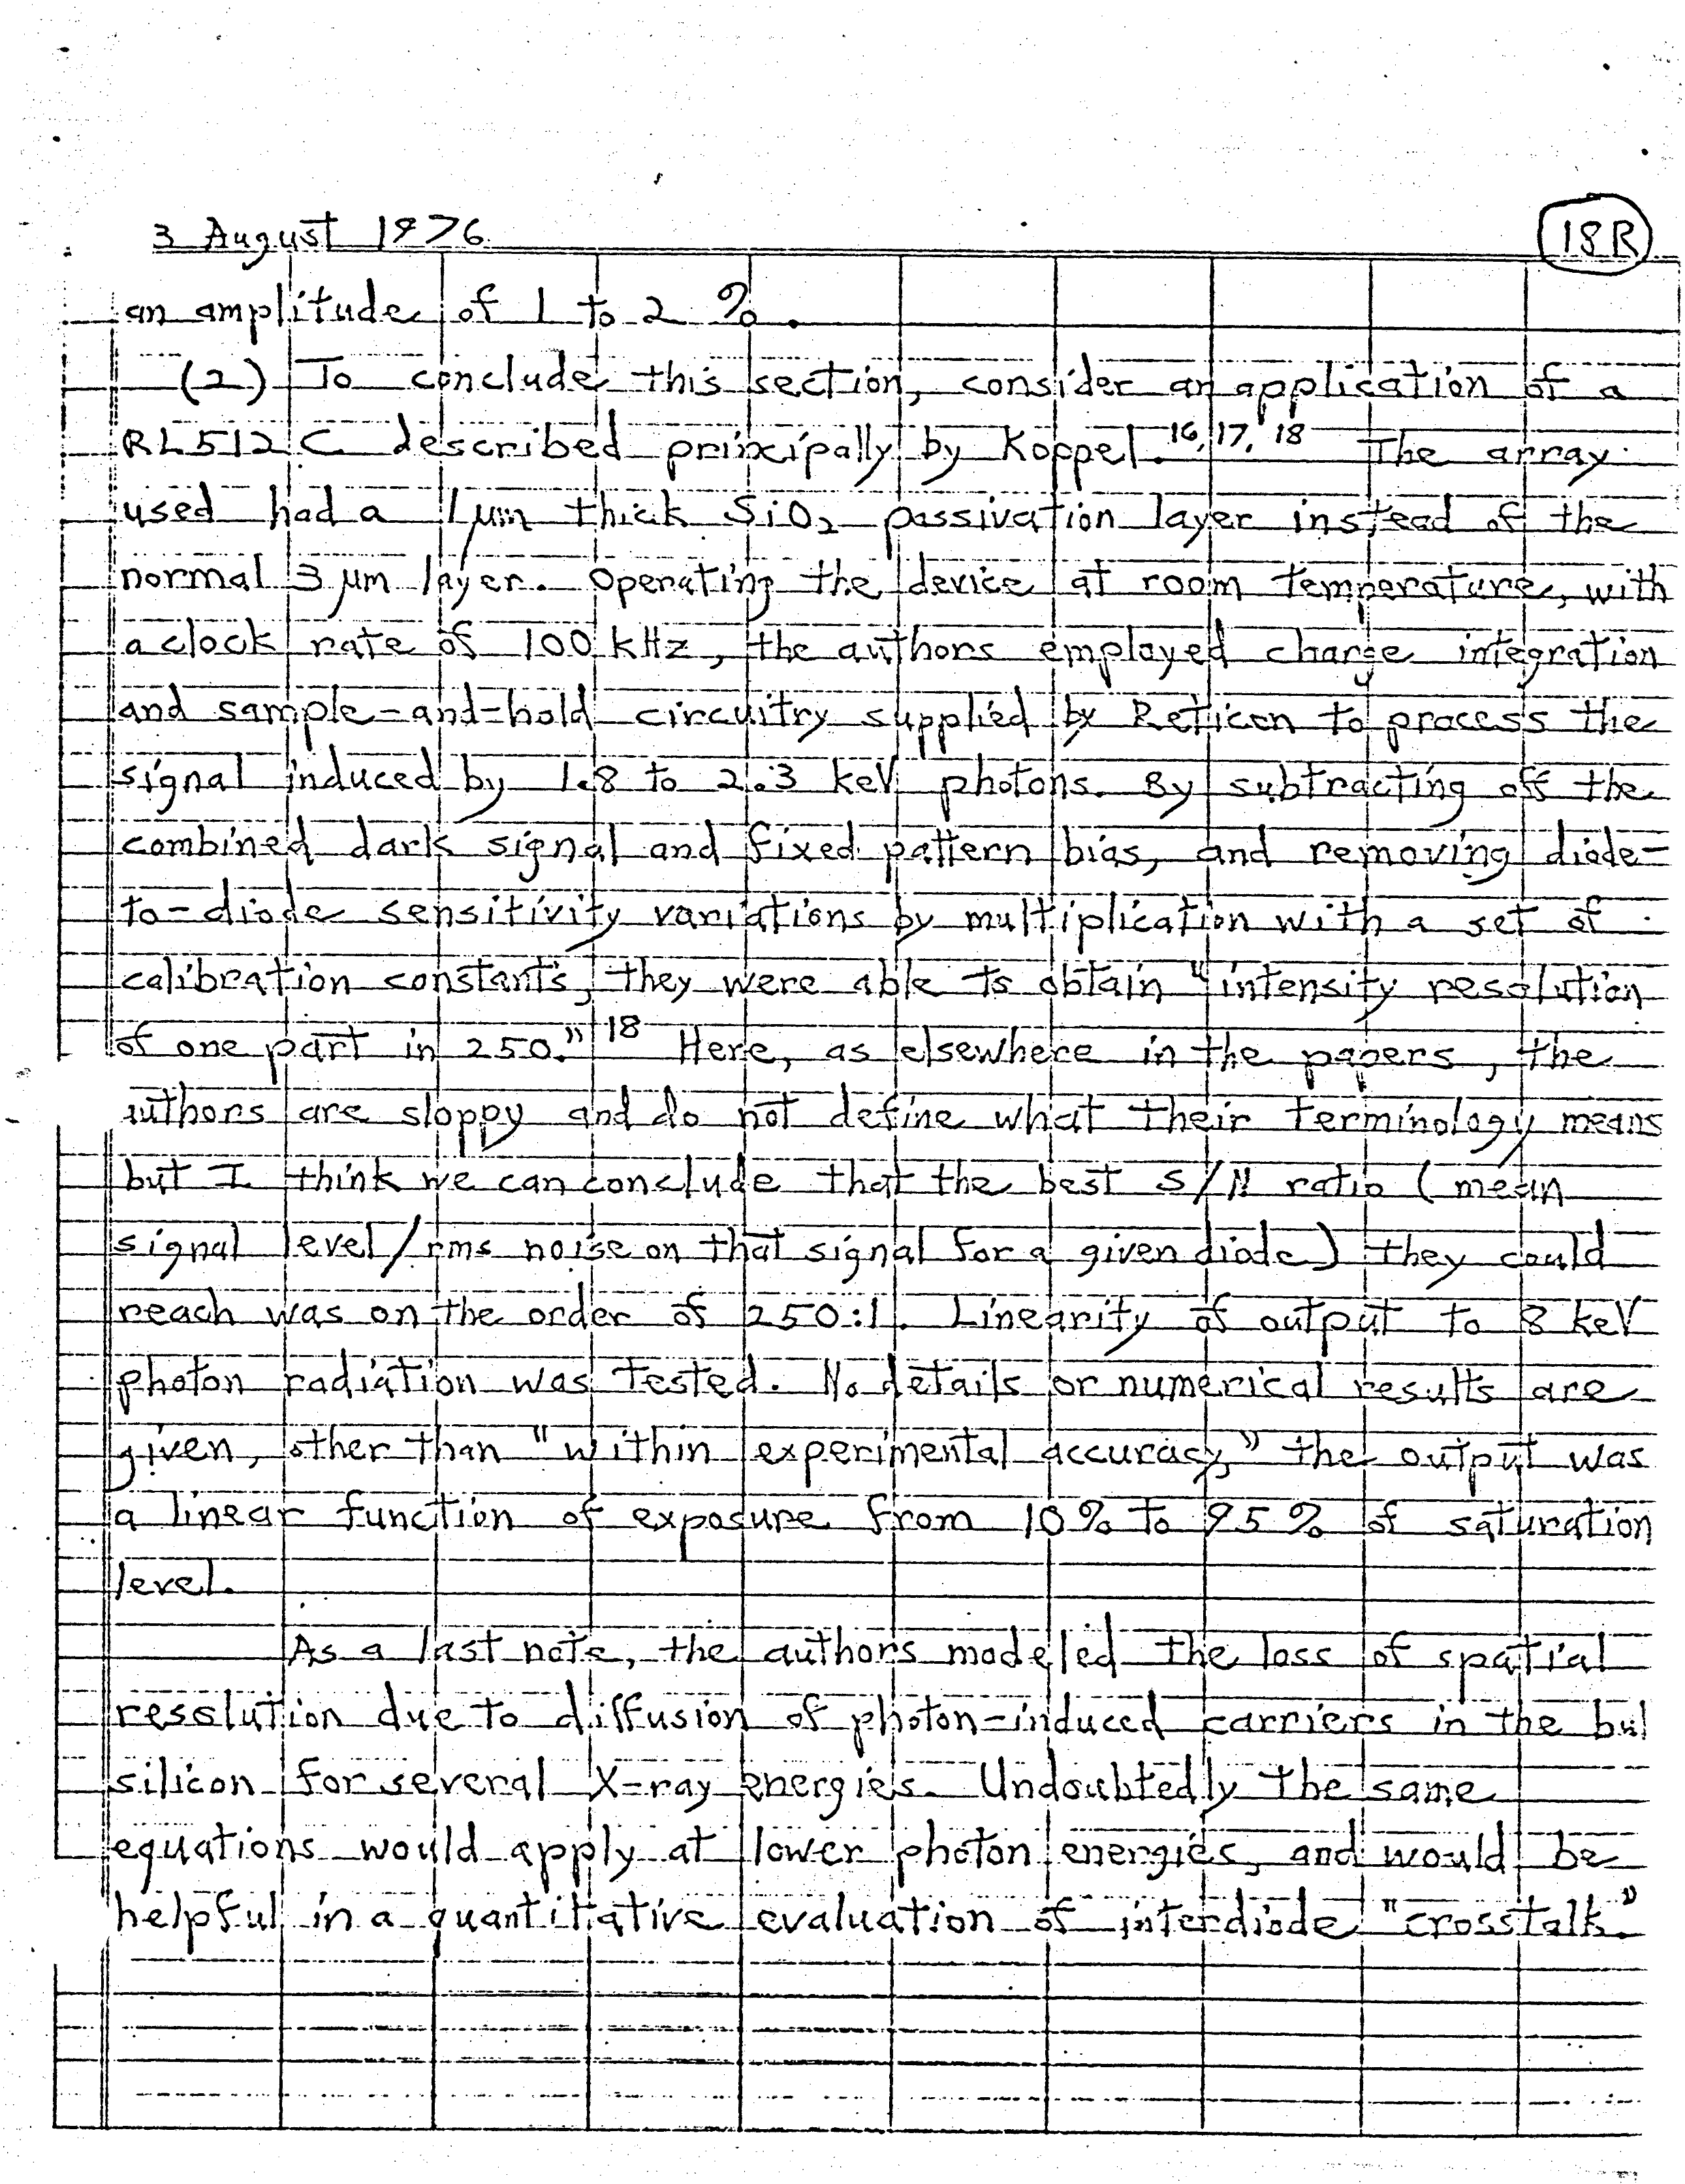 3 August 1976
18R
an amplitude of 1 to 2 %.
(2) To conclude this section, consider an application of a
RL512 C described principally by Koppel.16, 17, 18 The array
used had a 1 µm thick SiO2 passivation layer instead of the
normal 3 µm layer. Operating the device at room temperature, with
a clock rate of 100 kHz, the authors employed charge integration
and sample-and-hold circuitry supplied by Reticon to process the
signal induced by 1.8 to 2.3 keV photons. By subtracting off the
combined dark signal and fixed pattern bias, and removing diode-
to-diode sensitivity variations by multiplication with a set of
calibration constants, they were able to obtain "intensity resolution
of one part in 250." 18 Here, as elsewhere in the papers, the
uthors are sloppy and do not define what their terminology means
but I think we can conclude that the best S/N ratio (mean
signal level/rms noise on that signal for a given diode) they could
reach was on the order of 250:1. Linearity of output to 8 keV
photon radiation was tested. No details or numerical results are
given, other than "within experimental accuracy," the output was
a linear function of exposure from 10% to 95% of saturation
level.
As a last note, the authors modeled the loss of spatial
resolution due to diffusion of photon-induced carriers in the bul
silicon for several X-ray energies. Undoubtedly the same
equations would apply at lower photon energies, and would be
helpful in a quantitative evaluation of interdiode "crosstalk."